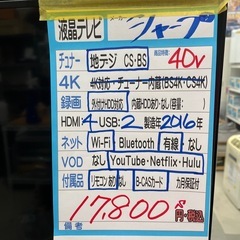 液晶テレビ メーカー シャープ
チューナー 地デジ CS・BS 商品特徴 40V
4K 4K対応・チューナー内蔵(BS4K・CS4K)
録画 外付HDD対応 内蔵HDDあり・なし(容量: )
HDMI 4 USB: 2 製造年 2016年
ネット Wi-Fi Bluetooth 有線 なし
VOD なし YouTube・Netflix・Hulu
付属品 リモコンあり なし B-CASカード カ月保証付
17,800 円・税込
備考